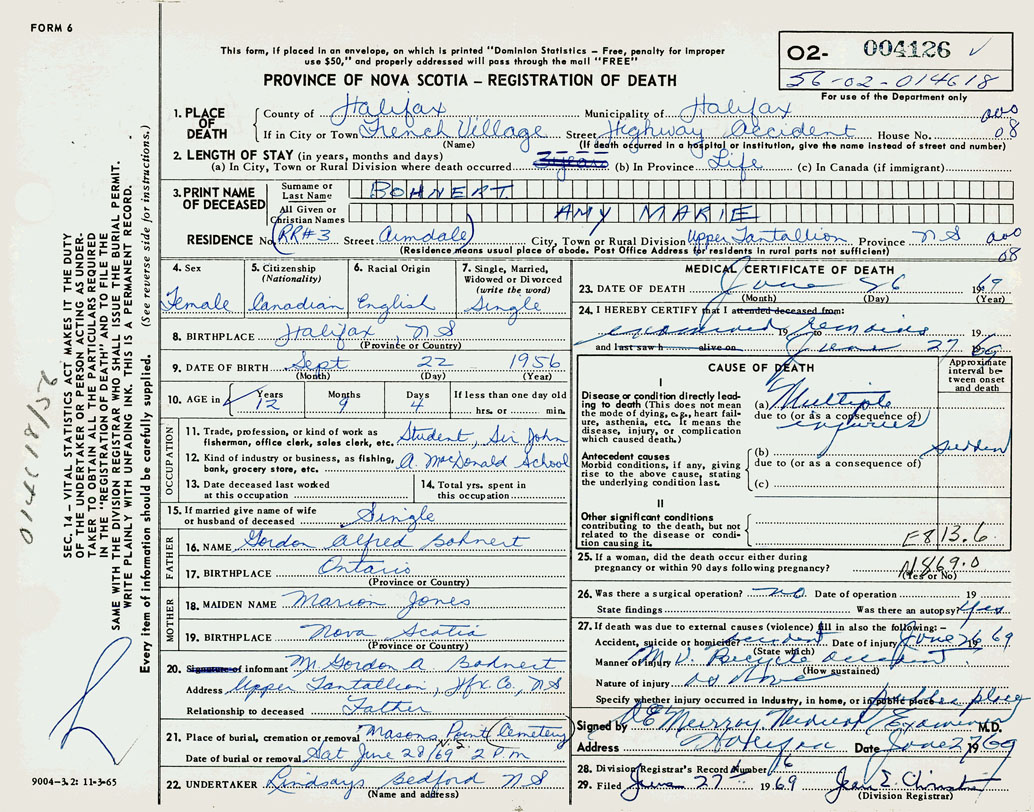 FORM 6
This form, if placed in an envelope, on which is printed "Dominion Statistics – Free, penalty for improper
use $50," and properly addressed will pass through the mail "FREE"
PROVINCE OF NOVA SCOTIA – REGISTRATION OF DEATH
02- 004126 ✓
56-02-014618
For use of the Department only
1. PLACE OF DEATH
County of Halifax Municipality of Halifax 000
If in City or Town French Village Street Highway Accident House No. 08
(Name) (If death occurred in a hospital or institution, give the name instead of street and number)
2. LENGTH OF STAY (in years, months and days)
(a) In City, Town or Rural Division where death occurred (b) In Province Life (c) In Canada (if immigrant)
3. PRINT NAME OF DECEASED
Surname or Last Name BOHNERT
All Given or Christian Names AMY MARIE
RESIDENCE No. RR#3 Street Armdale City, Town or Rural Division Upper Tantallion Province NS 000
(Residence means usual place of abode. Post Office Address for residents in rural parts not sufficient) 08
4. Sex Female
5. Citizenship (Nationality) Canadian
6. Racial Origin English
7. Single, Married, Widowed or Divorced (write the word) Single
8. BIRTHPLACE Halifax, NS
(Province or Country)
9. DATE OF BIRTH Sept 22 1956
(Month) (Day) (Year)
10. AGE in Years Months Days If less than one day old
12 9 4 hrs. or min.
OCCUPATION
11. Trade, profession, or kind of work as fisherman, office clerk, sales clerk, etc. Student, Sir John
12. Kind of industry or business, as fishing, bank, grocery store, etc. A. MacDonald School
13. Date deceased last worked at this occupation
14. Total yrs. spent in this occupation
15. If married give name of wife or husband of deceased Single
FATHER
16. NAME Gordon Alfred Bohnert
17. BIRTHPLACE Ontario
(Province or Country)
MOTHER
18. MAIDEN NAME Marion Jones
19. BIRTHPLACE Nova Scotia
(Province or Country)
20. Signature of informant M. Gordon A Bohnert
Address Upper Tantallion, Hfx Co., NS
Relationship to deceased Father
21. Place of burial, cremation or removal Masons Point (Cemetery) N.S.
Date of burial or removal Sat June 28/69 2 Pm
22. UNDERTAKER Lindsays Bedford NS
(Name and address)
MEDICAL CERTIFICATE OF DEATH
23. DATE OF DEATH June 26 1969
(Month) (Day) (Year)
24. I HEREBY CERTIFY that I attended deceased from:
examined 19 remains 19
and last saw h alive on June 27 1969
CAUSE OF DEATH
Approximate interval between onset and death
I
Disease or condition directly leading to death (This does not mean the mode of dying, e.g., heart failure, asthenia, etc. It means the disease, injury, or complication which caused death.)
(a) Multiple
due to (or as a consequence of)
injuries
Antecedent causes
Morbid conditions, if any, giving rise to the above cause, stating the underlying condition last.
(b) sudden
due to (or as a consequence of)
(c)
II
Other significant conditions
contributing to the death, but not related to the disease or condition causing it.
E813.6
25. If a woman, did the death occur either during
pregnancy or within 90 days following pregnancy? N869.0
(Yes or No)
26. Was there a surgical operation? no Date of operation 19
State findings Was there an autopsy? Yes
27. If death was due to external causes (violence) fill in also the following:–
Accident, suicide or homicide? accident Date of injury June 26 1969
(State which)
Manner of injury M V. Bicycle accident
(How sustained)
Nature of injury as above
Specify whether injury occurred in Industry, in home, or in public place public place
Signed by Murray Medical Examiner M.D.
Address Halifax Date June 27 1969
28. Division Registrar's Record Number 16
29. Filed June 27 1969 Jean E.
(Division Registrar)
014618/56
SEC. 14 – VITAL STATISTICS ACT MAKES IT THE DUTY
OF THE UNDERTAKER OR PERSON ACTING AS UNDER-
TAKER TO OBTAIN ALL THE PARTICULARS REQUIRED
IN THE "REGISTRATION OF DEATH" AND TO FILE THE
SAME WITH THE DIVISION REGISTRAR WHO SHALL ISSUE THE BURIAL PERMIT.
WRITE PLAINLY WITH UNFADING INK. THIS IS A PERMANENT RECORD.
Every item of information should be carefully supplied. (See reverse side for instructions.)
9004-3.2: 11-3-65